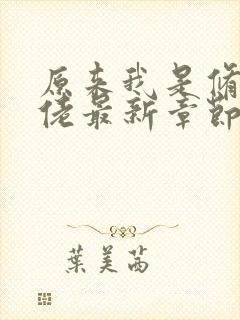 原来我是脩
佬最新章節
葉美茜